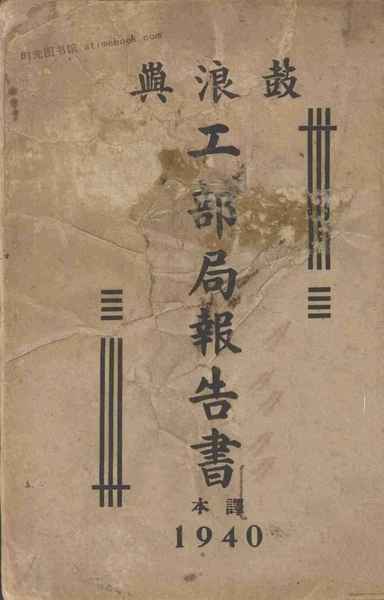 时光图书馆 atimebook.com
鼓浪嶼
工部局報告書
譯本
1940